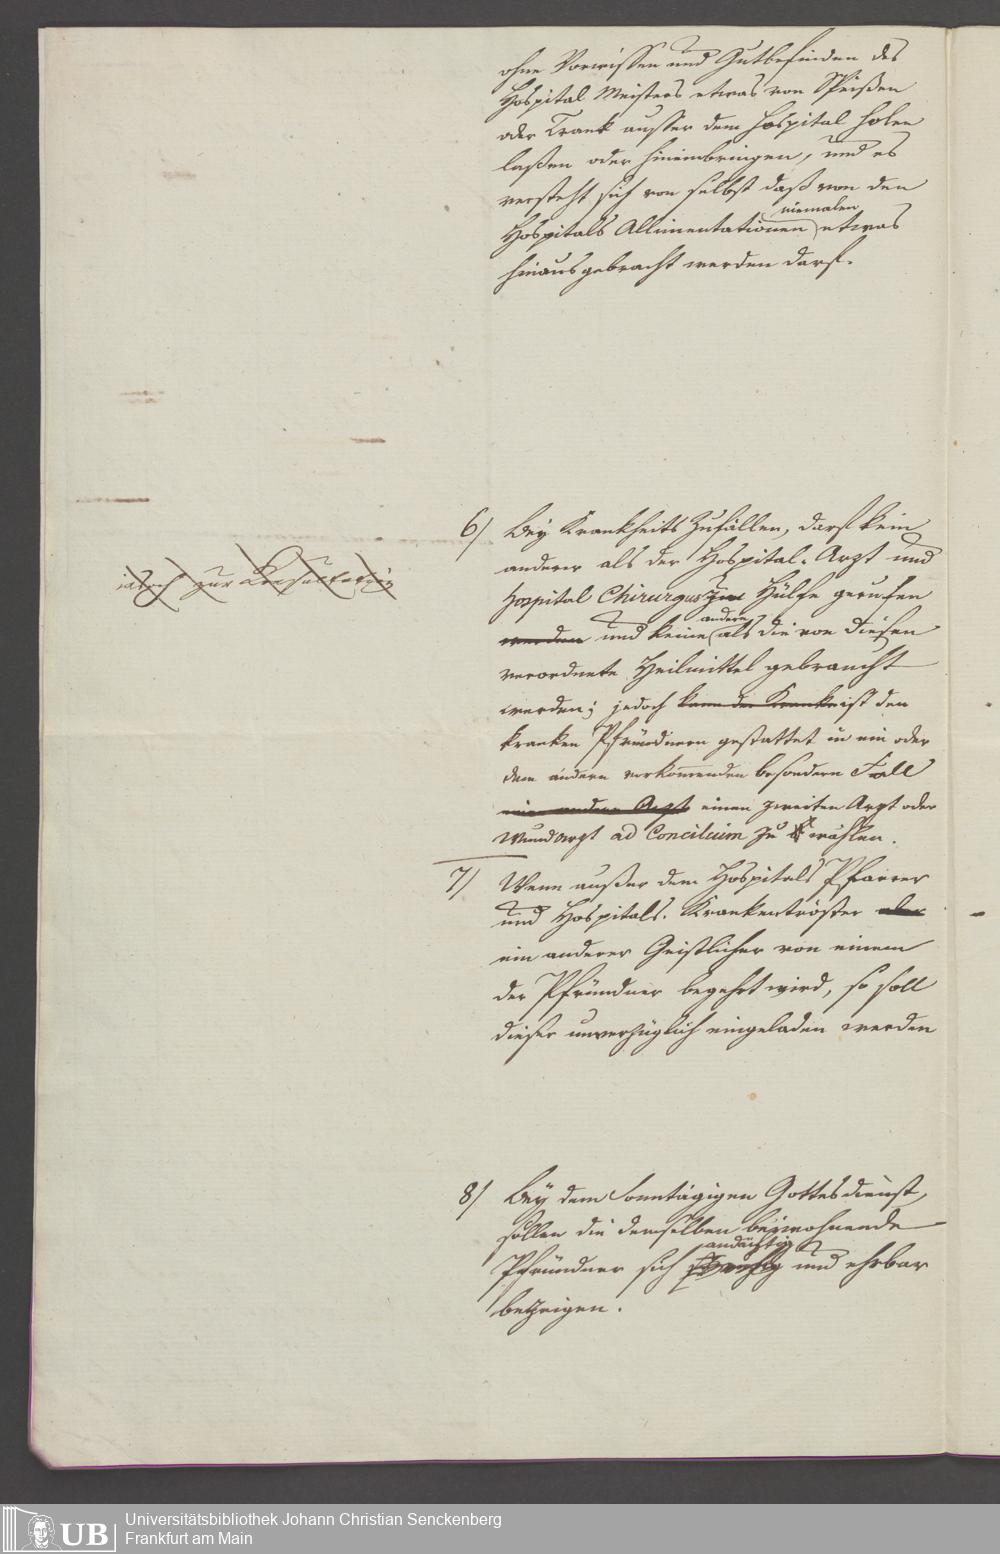 ohne Vorwissen und Gutbefinden des
Hospital Meisters etwas von Speißen
oder Trank ausser dem Hospital holen
laßen oder hineinbringen, und es
versteht sich von selbst daß von den
niemalen
Hospitals Allimentationen etwas
hinausgebracht werden darf.
6) Bey Krankheits Zufällen, darf kein
anderer als der Hospital-Arzt und
jedoch zur Consultation
Hospital Chirurgus zur Hülfe gerufen
andere
werden und keine als die von diesen
verordnete Heilmittel gebraucht
werden; jedoch kann der Kranke ist den
kranken Pfründnern gestattet in ein oder
dem andern vorkommenden besondern Fall
ein andern Arzt einen zweiten Arzt oder
Wundarzt ad Concilium zu wählen.
7) Wenn außer dem Hospitals Pfarrer
und Hospitals-Krankentröster oder
ein anderer Geistlicher von einem
der Pfründner begehrt wird, so soll
dieser unverzüglich eingeladen werden
8) Bey dem sonntägigen Gottesdienst,
sollen die demselben beywohnende
andächtig
Pfründner sich und ehrbar
bezeigen.
Universitätsbibliothek Johann Christian Senckenberg
UB Frankfurt am Main